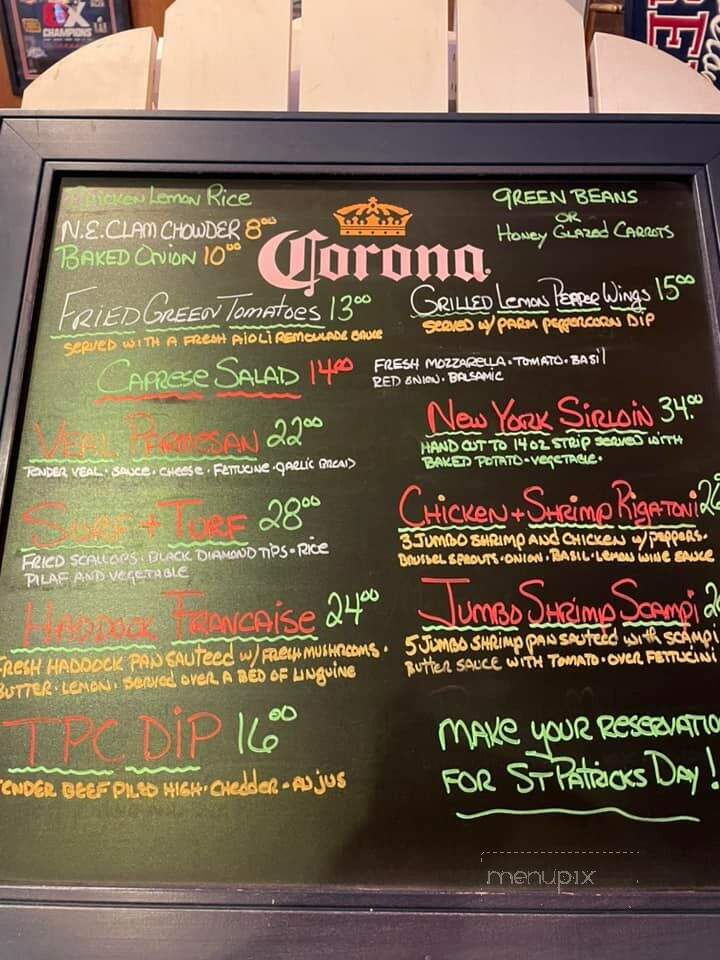 CHAMPIONS
Chicken Lemon Rice
N.E. CLAM CHOWDER 8⁰⁰
BAKED ONION 10⁰⁰
GREEN BEANS
OR
Honey Glazed Carrots
Corona.
FRIED GREEN TOMATOES 13⁰⁰
SERVED WITH A FRESH AIOLI REMOULADE SAUCE
GRILLED Lemon Pepper Wings 15⁰⁰
SERVED W/ PARM PEPPERCORN DIP
CAPRESE SALAD 14⁰⁰
FRESH MOZZARELLA • TOMATO • BASIL
RED ONION • BALSAMIC
VEAL PARMESAN 22⁰⁰
TENDER VEAL • SAUCE • CHEESE • FETTUCINE • GARLIC BREAD
New YORK SIRLOIN 34.⁰⁰
HAND CUT TO 14 OZ STRIP SERVED WITH
BAKED POTATO • VEGETABLE •
SURF + TURF 28⁰⁰
FRIED SCALLOPS • BLACK DIAMOND TIPS • RICE
PILAF AND VEGETABLE
CHICKEN + SHRIMP RIGATONI
3 JUMBO SHRIMP AND CHICKEN W/ PEPPERS •
BRUSSEL SPROUTS • ONION • BASIL • LEMON WINE SAUCE
HADDOCK FRANCAISE 24⁰⁰
FRESH HADDOCK PAN SAUTEED W/ FRESH MUSHROOMS •
BUTTER • LEMON • SERVED OVER A BED OF LINGUINE
JUMBO SHRIMP SCAMPI
5 JUMBO SHRIMP PAN SAUTEED WITH SCAMPI
BUTTER SAUCE WITH TOMATO • OVER FETTUCINI
TPC DIP 16⁰⁰
TENDER BEEF PILED HIGH • CHEDDER • AU JUS
MAKE YOUR RESERVATIO
FOR ST PATRICKS DAY!
menupix